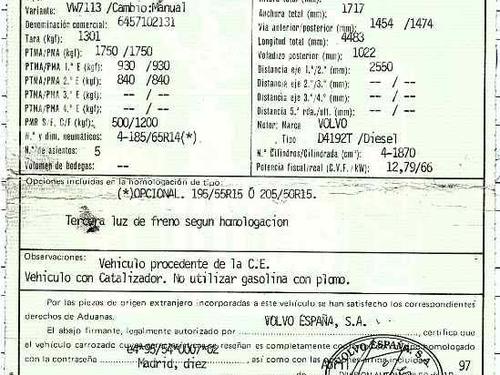 Variante: VW7113 /Cambio:Manual
Denominación comercial: 6457102131
Tara (kgf): 1301
PTMA/PMA (kgf): 1750 /1750
PTMA/PMA 1.º E (kgf): 930 /930
PTMA/PMA 2.º E (kgf): 840 /840
PTMA/PMA 3.º E (kgf): -- / --
PTMA/PMA 4.º E (kgf): -- / --
PMR S.F./C.F (kgf): 500/1200
N.º y dim. neumáticos: 4-185/65R14(*)
N.º de asientos: 5
Volumen de bodegas: --
Anchura total (mm): 1717
Vía anterior/posterior (mm): 1454 / 1474
Longitud total (mm): 4483
Voladizo posterior (mm): 1022
Distancia eje 1.º/2.º (mm): 2550
Distancia eje 2.º/3.º (mm): -- / --
Distancia eje 3.º/4.º (mm): -- / --
Distancia 5.ª rda./ult. (mm): -- / --
Motor: Marca VOLVO
Tipo D4192T /Diesel
N.º Cilindros/Cilindrada (cm³): 4-1870
Potencia fiscal/real (C.V.F./KW): 12,79/66
Opciones incluidas en la homologación de tipo:
(*)OPCIONAL. 195/55R15 Ó 205/50R15.
Tercera luz de freno segun homologacion
Observaciones: Vehiculo procedente de la C.E.
Vehiculo con Catalizador. No utilizar gasolina con plomo.
Por las piezas de origen extranjero incorporadas a este vehículo se han satisfecho los correspondientes
derechos de Aduanas.
El abajo firmante, legalmente autorizado por VOLVO ESPAÑA, S.A. , certifica que
el vehículo carrozado cuyas reseñan es completamente homologado
con la contraseña e4*95/54*0007*02 , así como con las
Madrid, diez ABRIL 97
VOLVO ESPAÑA, S.A.